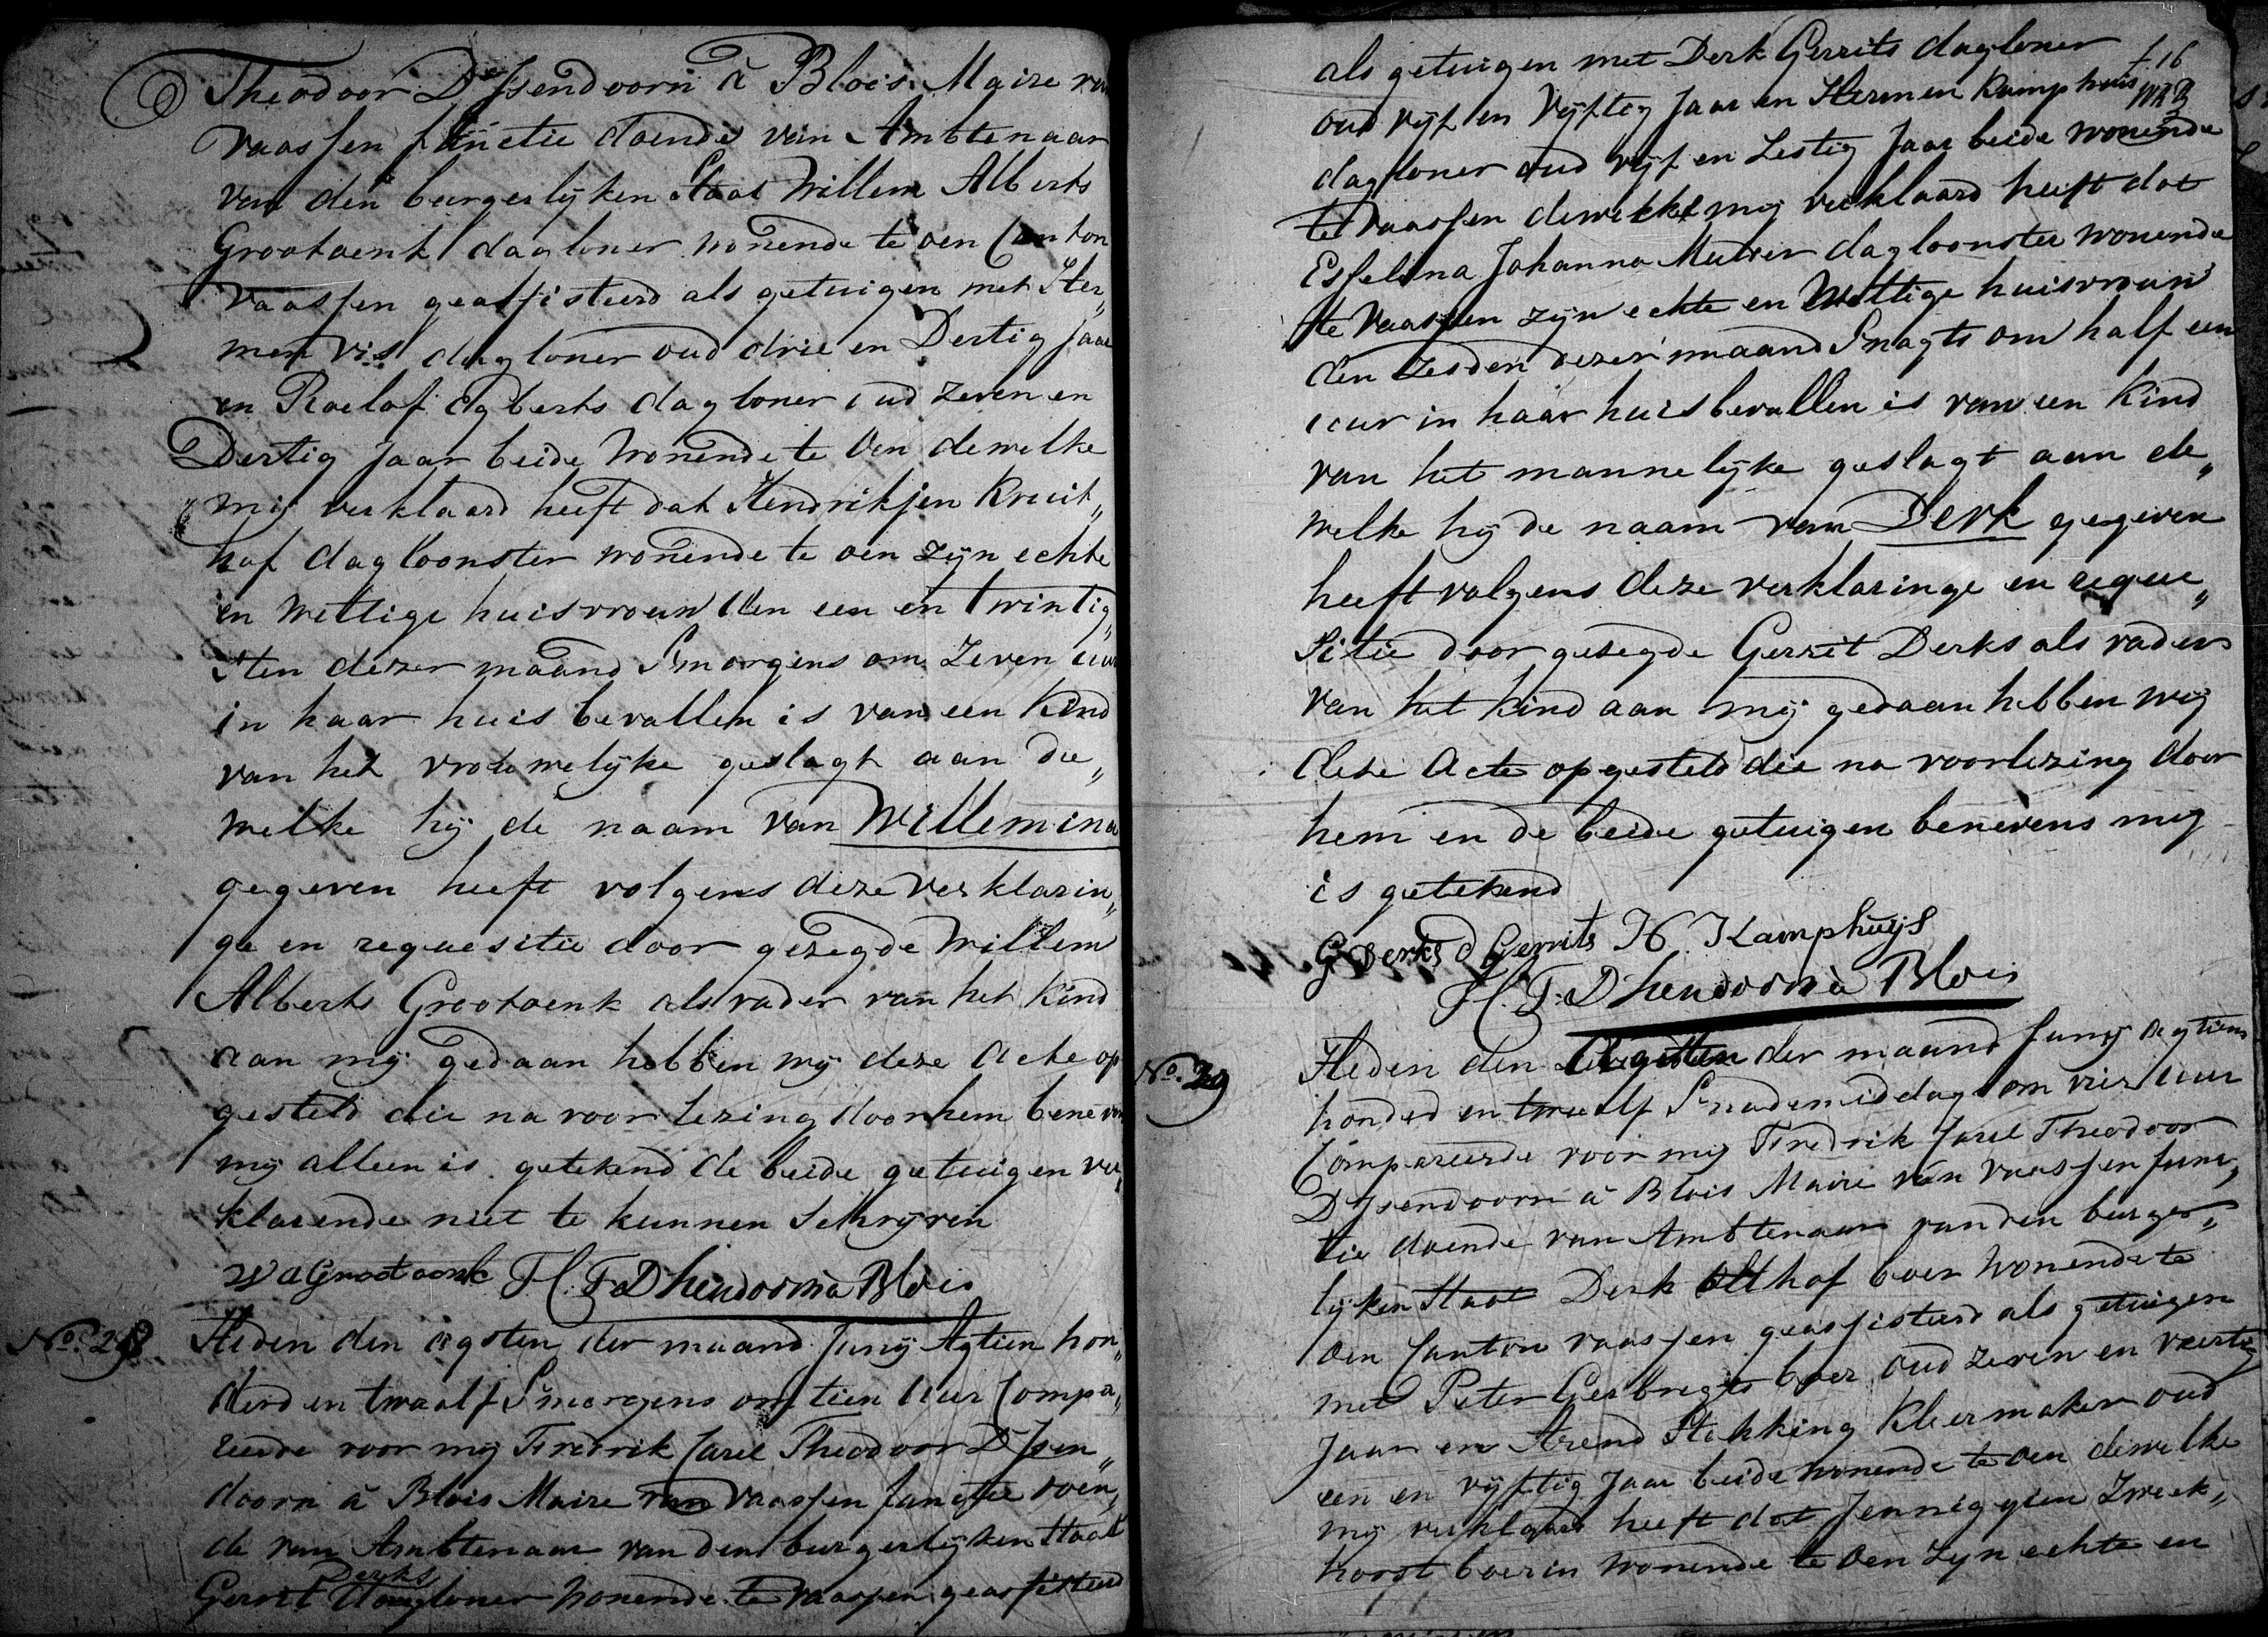 Theodoor D'Isendoorn à Blois Maire van
Vaassen functie doende van Ambtenaar
van den burgerlijken Staat Willem Alberts
Grootoenk dagloner wonende te oen Canton
Vaassen geassisteerd als getuigen met Her„
men Vis dagloner oud drie en Dertig Jaar
en Roelof Egberts dagloner oud zeven en
Dertig Jaar beide wonende te Oen dewelke
mij verklaard heeft dat Hendrikjen Kruit„
hof dagloonster wonende te oen zijn echte
en wettige huisvrouw den een en twintig„
sten dezer maand Smorgens om Zeven uur
in haar huis bevallen is van een Kind
van het vrouwelijke geslagt aan de„
welke hij de naam van Willemina
gegeven heeft volgens deze verklarin„
ge en requesitie door gezegde Willem
Alberts Grootoenk als vader van het Kind
aan mij gedaan hebben wij deze Acte op
gesteld die na voorlezing door hem beneven
mij alleen is getekend de beide getuigen ver„
klarende niet te kunnen Schrijven
W A Grootoenk H. F. D Isendoorn à Blois
No. 28 Heden den agsten der maand Junij Agtien hon„
derd en twaalf Smorgens om tien uur Compa„
reerde voor mij Fredrik Carel Theodoor D'Isen„
doorn à Blois Maire van Vaassen functie doen„
de van Ambtenaar van den burgerlijken Staat
Derks
Gerrit dagloner wonende te Vaassen geassisteerd
als getuigen met Derk Gerrits dagloner
f 16
oud vijf en Vijftig Jaar en Hermen Kamphuis
dagloner oud vijf en Zestig Jaar beide wonende
te Vaassen dewelke mij verklaard heeft dat
Esselina Johanna Mulder dagloonster wonende
te Vaassen zijn echte en Wettige huisvrouw
den Zesden dezer maand Snagts om half een
uur in haar huis bevallen is van een Kind
van het mannelijke geslagt aan de„
welke hij de naam van Derk gegeven
heeft volgens deze verklaringe en reque„
sitie door gezegde Gerrit Derks als vader
van het kind aan mij gedaan hebben wij
deze Acte opgesteld die na voorlezing door
hem en de beide getuigen benevens mij
is getekend
G Derks D Gerrits H. Kamphuijs
H. F. D Isendoorn à Blois
No. 29 Heden den der maand Junij Agtien
honded en twaalf Snademiddags om vier uur
Compareerde voor mij Fredrik Carel Theodoor
D'Isendoorn à Blois Maire van Vaassen func„
tie doende van Ambtenaar van den burger„
lijken Staat Derk Althof boer wonende te
Oen Canton Vaassen geassisteerd als getuigen
met Peter Gerbregts boer oud zeven en veertig
Jaar en Arend Stekking Kleermaker oud
een en vijftig Jaar beide wonende te Oen dewelke
mij verklaard heeft dat Jenniggien Zweek„
horst boerin wonende te Oen zijn echte en